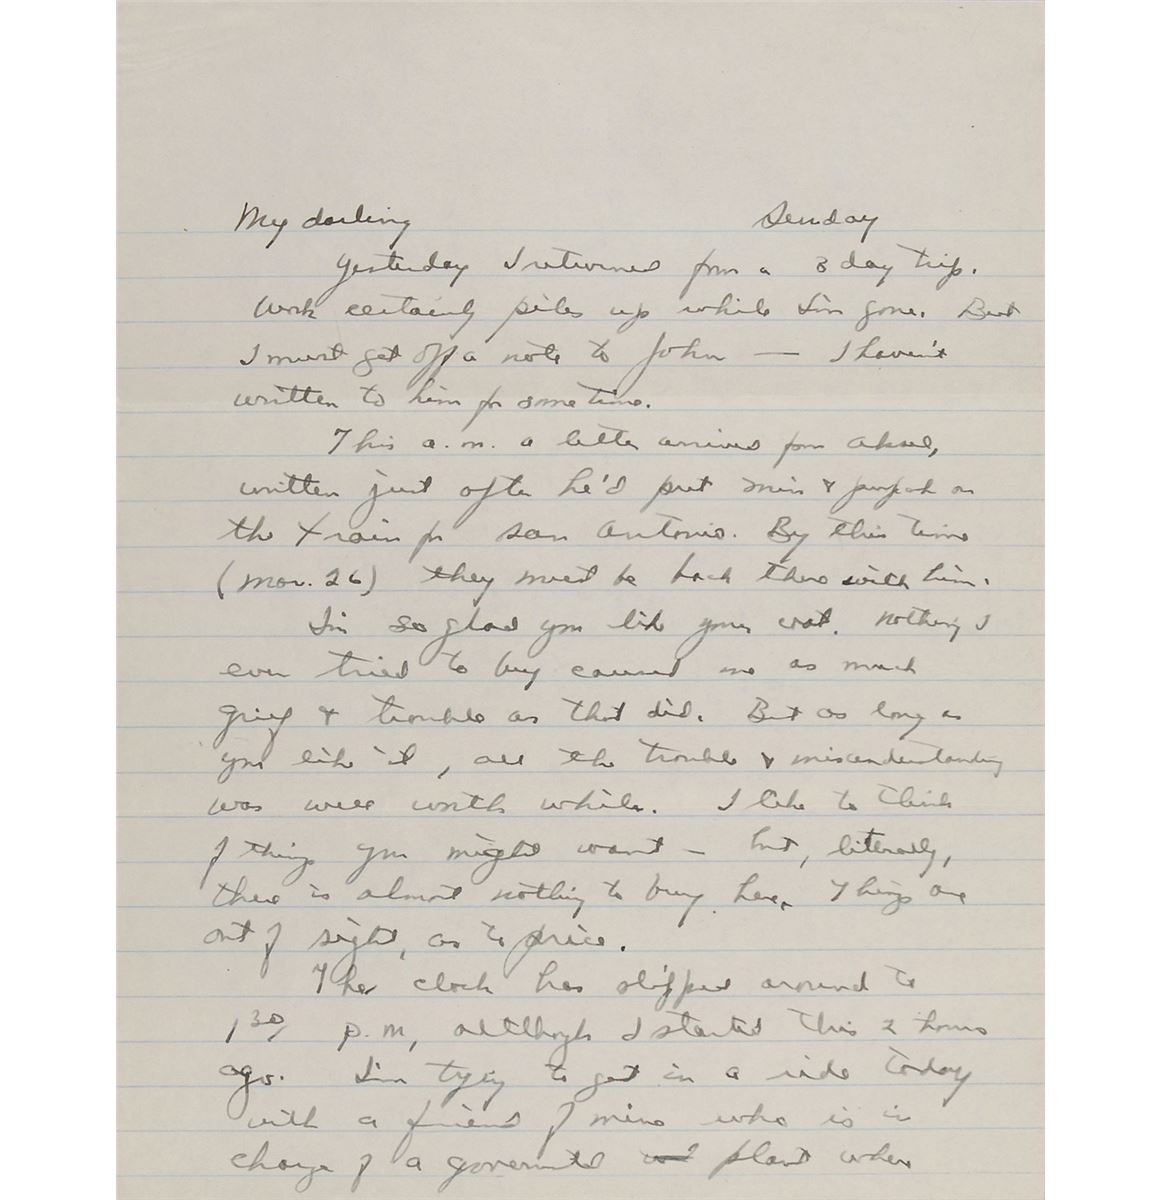 My darling Sunday
Yesterday I returned from a 3 day trip.
Work certainly piles up while I'm gone. But
I must get off a note to John — I haven't
written to him for some time.
This a.m. a letter arrived from Aksel,
written just after he'd put Mim & on
the train for San Antonio. By this time
(Nov. 26) they must be back there with him.
I'm so glad you like your coat. Nothing I
ever tried to buy caused me as much
grief & trouble as that did. But as long as
you like it, all the trouble & misunderstanding
was well worth while. I like to think
of things you might want – but, literally,
there is almost nothing to buy here. Things are
out of sight, as to price.
The clock has slipped around to
1 30/ p.m, although I started this 2 hours
ago. I'm trying to get in a ride today
with a friend of mine who is in
charge of a government plant where